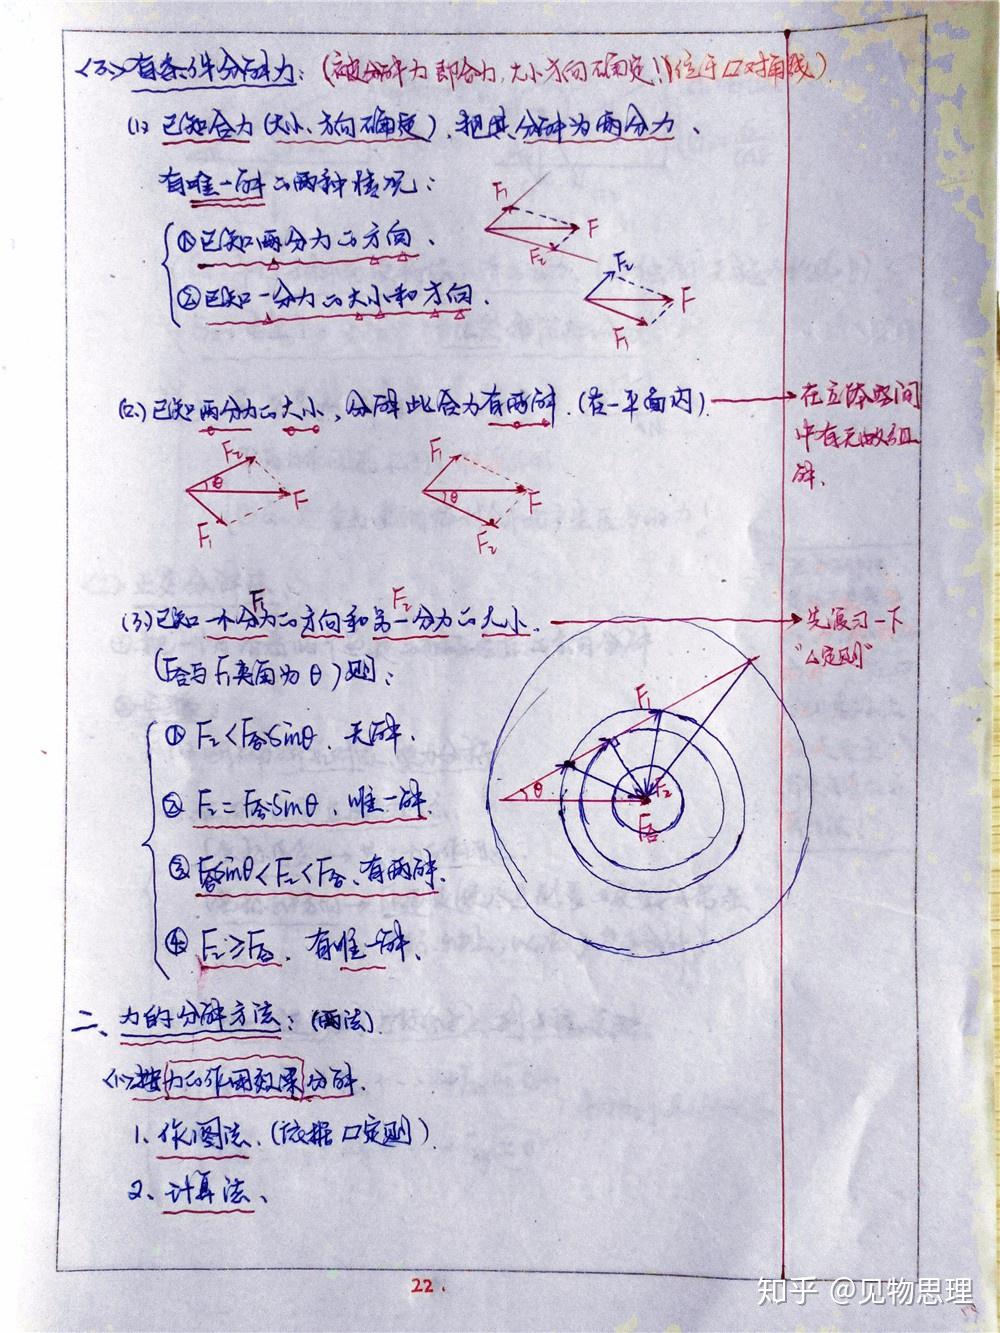 <五>有条件分解力:(被分解力即合力,大小方向确定!)(位于口对角线)
(1)已知合力(大小、方向确定),把其分解为两分力、
有唯一解の两种情况:
①已知两分力の方向、
②已知一分力の大小和方向.
F₁
F
F₂
F₂
F
F₁
(2)已知两分力の大小,分解此合力有两解.(在一平面内).
在立体空间
中有无数组
解.
F₂
θ
F
F₁
F₁
θ
F
F₂
F₁
F₂
(3)已知一个分力の方向和另一分力の大小.
先复习一下
"△定则"
(F合与F₁夹角为θ)则:
①F₂<F合sinθ.无解.
②F₂=F合sinθ.唯一解.
③F合sinθ<F₂<F合.有两解.
④F₂≥F合.有唯一解.
F₁
θ
F₂
F合
二、力的分解方法:(两法).
<1>按力の作用效果分解.
1、作图法.(依据口定则).
2、计算法、
22.
知乎 @见物思理